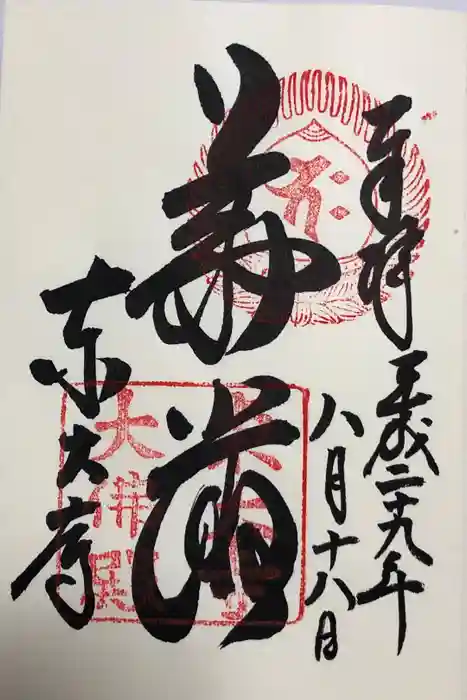 奉拝
平成二十九年
八月十八日
華嚴
東大寺
大佛殿